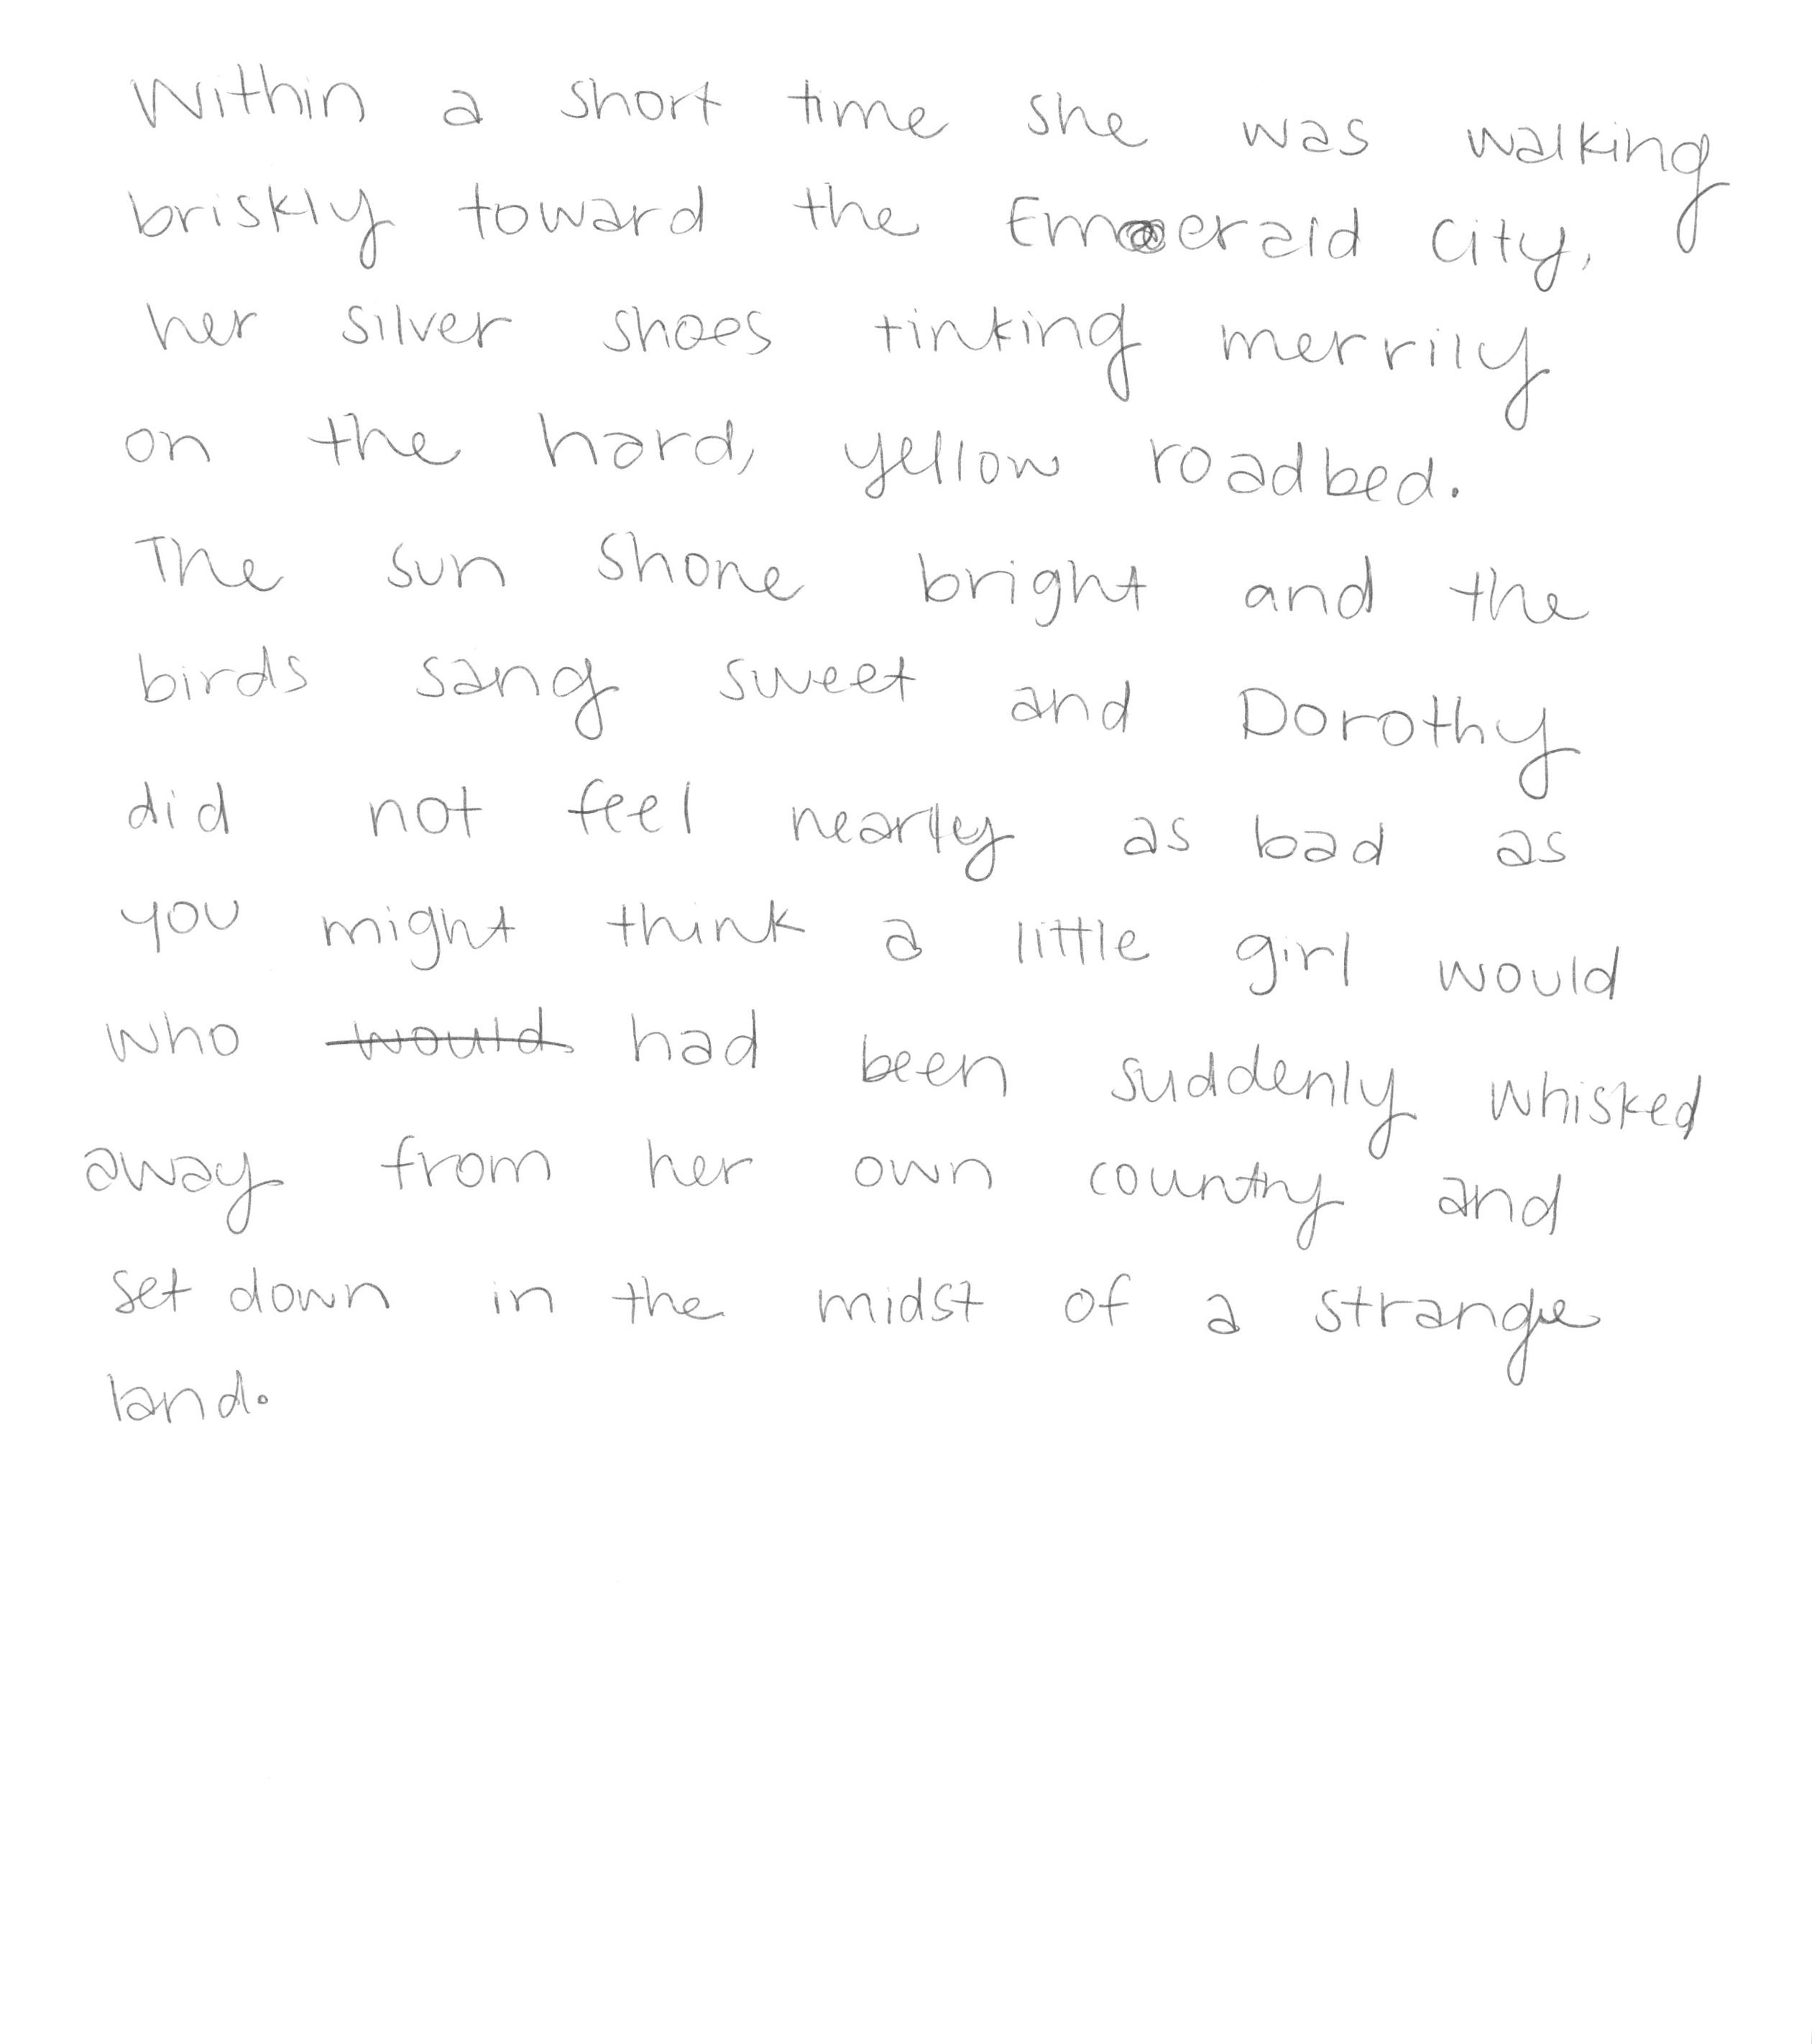 Within a short time she was walking
briskly toward the Emerald City,
her silver shoes tinking merrily
on the hard, yellow roadbed.
The sun shone bright and the
birds sang sweet and Dorothy
did not feel nearly as bad as
you might think a little girl would
who would had been suddenly whisked
away from her own country and
set down in the midst of a strange
land.